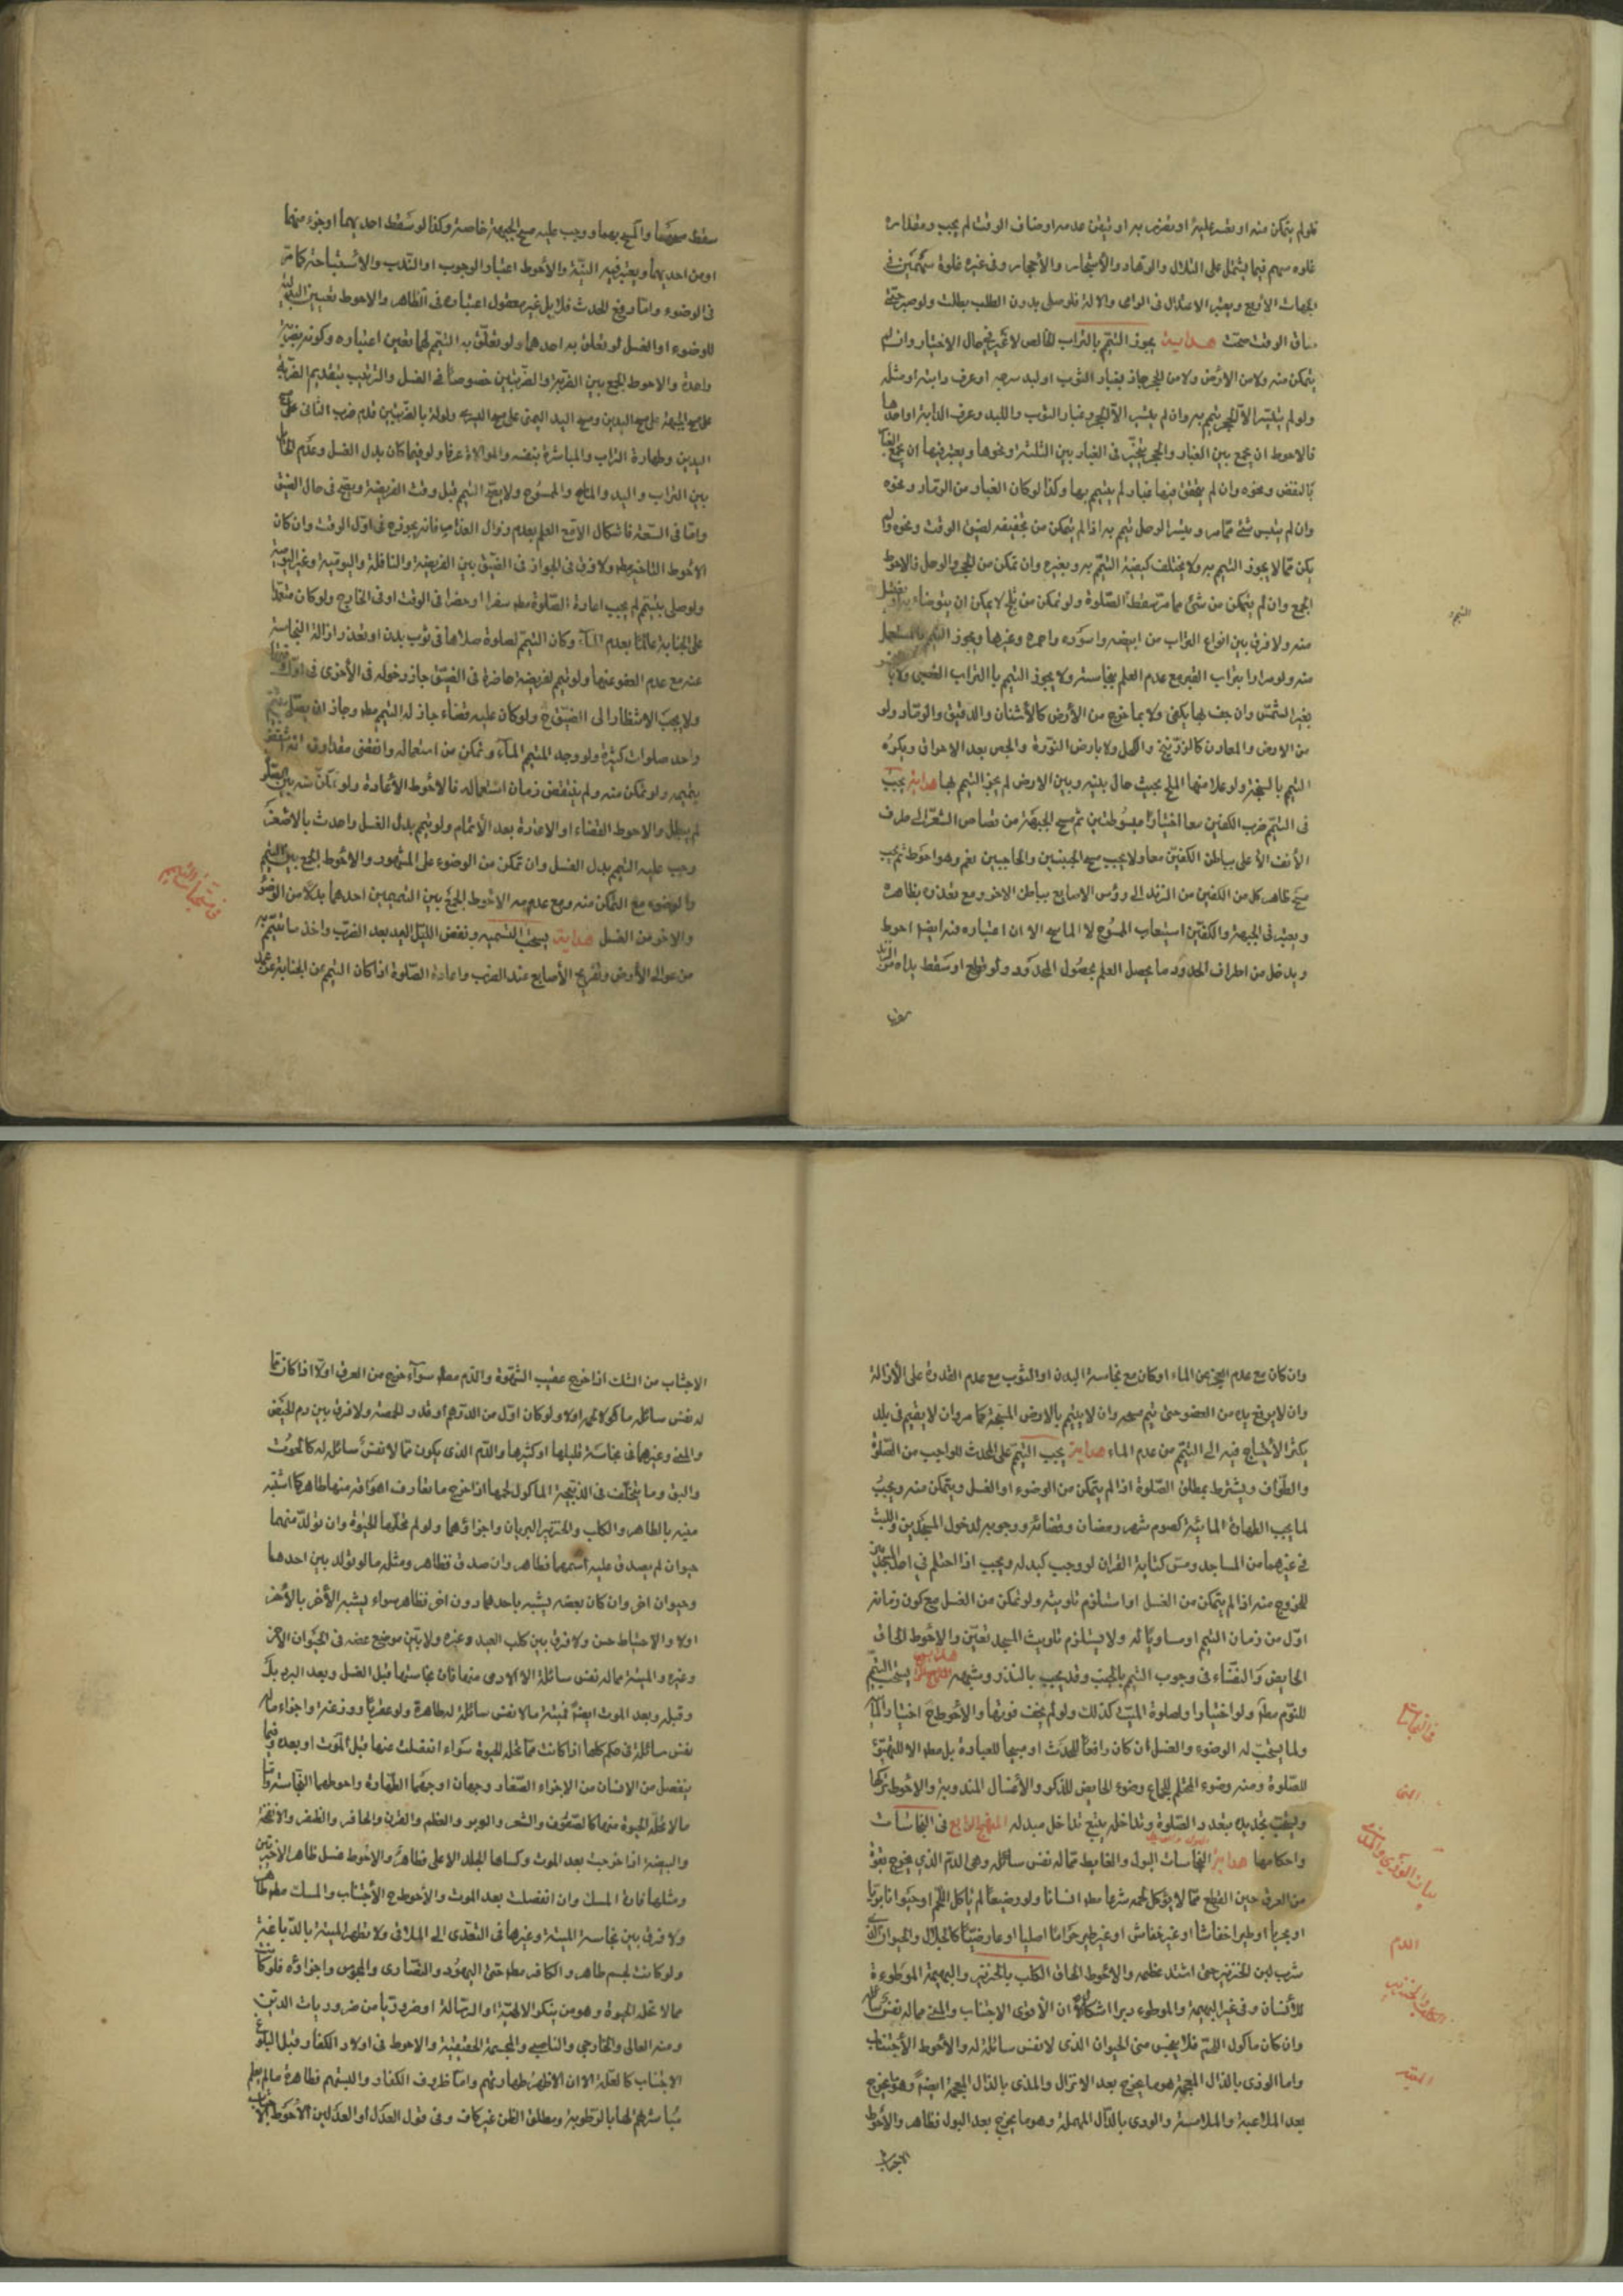 فلو لم يتمكن منه او تعسر عليه او تضرر به او تيقن عدمه او ضاق الوقت لم يجب ومقداره
غلوه سهم فيما يشتمل على التلال والوهاد والأشجار والأحجار وفى غيره غلوة سهمين فى
الجهات الأربع ويعتبر الاعتدال فى الرامى والالة فلو صلى بدون الطلب بطلت ولو صبر حتى
ضاق الوقت صحت هداية يجوز التيمم بالتراب الخالص لا غير فى حال الاختيار وان لم
يتمكن منه ولا من الارض ولا من الحجر جاز بغبار الثوب او لبد سرجه او عرف دابته او مثله
ولو لم يتيسر الا الحجر يتيمم به وان لم يتيسر الا الحجر وغبار الثوب واللبد وعرف الدابة او احدها
فالاحوط ان يجمع بين الغبار والحجر يتخير فى الغبار بين الثلثة ونحوها ويعتبر فيها ان يجمع الغبار
بالنفض ونحوه وان لم يتحقق فيها غبار لم يتيمم بها وكذا لو كان الغبار من الرماد ونحوه
وان لم يتيسر شئ مما مر وتيسر الوحل تيمم به اذا لم يتمكن من تجفيفه لضيق الوقت ونحوه ولم
يكن مما لا يجوز التيمم به ولا يختلف كيفية التيمم به وبغيره وان تمكن من الحجر والوحل فالاحوط
الجمع وان لم يتمكن من شئ مما مر سقط الصلوة ولو تمكن من ثلج لا يمكن ان يتوضاء به او يغتسل
منه ولا فرق بين انواع التراب من ابيضه واسوده واحمره وغيرها ويجوز التيمم بالمستعمل
منه ولو مرارا وبتراب القبر مع عدم العلم بنجاسته ولا يجوز التيمم بالتراب النجس ولا
بغير الشمس وان جف بها يكفى ولا بما خرج من الأرض كالأشنان والدقيق والرماد ولو
من الارض والمعادن كالزرنيخ والكحل ولا بارض النورة والجص بعد الاحراق ويكره
التيمم بالسبخة ولو علا منها الملح بحيث حال بينه وبين الارض لم يجز التيمم بها هداية يجب
فى التيمم ضرب الكفين معا اختيارا مبسوطتين ثم مسح الجبهة من قصاص الشعر الى طرف
الأنف الأعلى بباطن الكفين معا ولا يجب مسح الجبينين والحاجبين نعم وهو احوط ثم يجب
مسح ظاهر كل من الكفين من الزند الى رؤس الاصابع بباطن الاخر ومع تعذره بظاهره
ويعتبر فى الجبهة والكفين استيعاب الممسوح لا الماسح الا ان اعتباره فيه ايضا احوط
ويدخل من اطراف الحدود ما يحصل العلم بحصول المحدود ولو قطع او سقط يداه من الزند
التيمم
سقط مسحهما والمسح بهما ووجب عليه مسح الجبهة خاصة وكذا لو سقط احديهما او جزء منهما
او من احديهما ويعتبر فيه النية والأحوط اعتبار الوجوب او الندب والأستباحة كما مر
فى الوضوء واما رفع الحدث فلا بل غير معقول اعتباره فى الظاهر والاحوط تعيين البدلية
للوضوء او الغسل لو تعلق به احدهما ولو تعلق به التيمم لهما تعين اعتباره وكونه بضربة
واحدة والاحوط الجمع بين الضربة والضربتين خصوصا فى الغسل والترتيب بتقديم الضربة
على مسح الجبهة على مسح اليدين ومسح اليد اليمنى على مسح اليسرى ولو لم بالضربتين قدم ضرب الثانى على مسح
اليدين وطهارة التراب والمباشرة بنفسه والموالاة عرفا ولو فيما كان بدل الغسل وعدم الحائل
بين التراب واليد والماسح والممسوح ولا يصح التيمم قبل وقت الفريضة ويصح فى حال الضيق
واما فى السعة فاشكال الا مع العلم بعدم زوال العذر فانه يجوز ح فى اول الوقت وان كان
الاحوط التاخير مط ولا فرق فى الجواز فى الضيق بين الفريضة والنافلة واليومية وغير اليومية
ولو صلى بتيمم لم يجب اعادة الصلوة مط سفرا او حضرا فى الوقت او فى الخارج ولو كان متعمدا
على الجنابة عالما بعدم الماء وكان التيمم لصلوة صلاها فى ثوب بدن او تعذر ازالة النجاسة
عنه مع عدم العفو عنها ولو تيمم لفريضة حاضرة فى الضيق جاز دخوله فى الأخرى فى اول وقتها
ولا يجب الانتظار الى الضيق ح ولو كان عليه قضاء جاز له التيمم مط وجاز ان يصلى بتيمم
واحد صلوات كثيرة ولو وجد المتيمم الماء وتمكن من استعماله وانقضى مقداره انتقض
بتيممه ولو تمكن منه ولم ينقض زمان استعماله فالاحوط الأعادة ولو تمكن منه بين الصلوة
لم يبطل والاحوط القضاء او الاعادة بعد الأتمام ولو تيمم بدل الغسل واحدث بالاصغر
وجب عليه التيمم بدل الغسل وان تمكن من الوضوء على المشهور والاحوط الجمع بين التيمم
والوضوء مع التمكن منه ومع عدمه الاحوط الجمع بين التيممين احدهما بدلا من الوضوء
والاخر من الغسل هداية يستحب التسمية ونفض الليل اليد بعد الضرب واخذ ما يتيمم به
من عوالى الأرض وتفريج الأصابع عند الضرب واعادة الصلوة اذا كان التيمم من الجنابة عن عمد
فى مستحبات التيمم
وان كان مع عدم التمكن من الماء او كان مع نجاسة البدن او الثوب مع عدم القدرة على الأزالة
وان لا يرفع يده من العضو حتى يتم مسحه وان لا يتيمم بالارض السبخة كما مر وان لا يقيم فى بلد
يكثر الأحتياج فيه الى التيمم من عدم الماء هداية يجب التيمم على المحدث للواجب من الصلوة
والطواف ويشترط بمطلق الصلوة اذا لم يتمكن من الوضوء او الغسل ويتمكن منه ويجب
لما يجب الطهارة المائية كصوم شهر رمضان وقضائه ووجوبه لدخول المسجدين واللبث
فى غيرهما من المساجد ومس كتابة القران لو وجب كبدله ويجب اذا احتلم فى احد المسجدين
للخروج منه اذا لم يتمكن من الغسل او استلزم تلويثه ولو تمكن من الغسل مع كون زمانه
اول من زمان التيمم او مساويا له ولا يستلزم تلويث المسجد تعين والاحوط الحاق
الحايض والنفساء فى وجوب التيمم بالجنب وقد يجب بالنذر وشبهه هداية يستحب التيمم
للنوم مطلقا ولو اختيارا ولصلوة الميت كذلك ولو لم يخف فوتها والأحوط ح اختيار الماء
ولما يستحب له الوضوء والغسل ان كان رافعا للحدث او مبيحا للعبادة بل مط الا للتهيؤ
للصلوة ومنه وضوء المحتلم للجماع وضوء الحايض للذكر والأغسال المندوبة والاحوط تركها
ويستحب تجديده بتعدد الصلوة وتداخله يتبع تداخل مبدله المنهج الرابع فى النجاسات
واحكامها هداية النجاسات البول والغايط مما له نفس سائلة وهى الدم الذى يخرج بقوة
من العرق حين القطع مما لا يؤكل لحمه شرعا مط انسانا ولو رضيعا لم ياكل اللحم او حيوانا بريا
او بحريا او طيرا خفاشا او غير خفاش او غير طير حراما اصليا او عارضيا كالجلال والحيوان الذى
شرب لبن الخنزير حتى اشتد عظمه والاحوط الحاق الكلب بالخنزير والبهيمة الموطوءة
للأنسان وفى غير البهيمة والموطوء دبرا اشكال الا ان الأقوى الاجتناب والمنى مما له نفس سائلة
وان كان ماكول اللحم فلا ينجس منى الحيوان الذى لا نفس سائلة له والأحوط الأجتناب
واما الوذى بالذال المعجمة هو ما يخرج بعد الانزال والمذى بالذال المعجمة ايضا وهو ما يخرج
بعد الملاعبة والملامسة والودى بالدال المهملة وهو ما يخرج بعد البول فطاهر والأحوط
الاجتناب
فى النجاسات
المنى
بيان الوذى والمذى
الدم
الكلب والخنزير
الميتة
الاجتناب من الثلث اذا خرج عقيب الشهوة والدم مط سوآء خرج من العرق اولا اذا كان مما
له نفس سائلة ماكولا لحمه اولا ولو كان اول من الدرهم او قدر الحمصة ولا فرق بين دم الحيض
والمنى وغيرهما فى نجاسة قليلها او كثيرها والدم الذى يكون مما لا نفس سائلة له كالحوت
والبق وما يتخلف فى الذبيحة الماكول لحمها اذا خرج ما تعارف اهراقه منها طاهر كما اشتبه
منه بالطاهر والكلب والخنزير البريان واجزاؤهما ولو لم تحلها الحيوة وان تولد منهما
حيوان لم يصدق عليه اسمهما فطاهر وان صدق فطاهر ومثله ما لو تولد بين احدهما
وحيوان اخر وان كان بعضه يشبه باحدهما دون اخر فطاهر سواء يشبه الأخر بالأخر
اولا والاحتياط حسن ولا فرق بين كلب الصيد وغيره ولا بين موضع عضه فى الحيوان الاخر
وغيره والميتة مما له نفس سائلة الا الادمى منها فان نجاستها قبل الغسل وبعد البرد بل
وقبله وبعد الموت ايضا فميتة ما لا نفس سائلة له طاهرة ولو عقربا ووزغة واجزاء ما له
نفس سائلة فى حكم كلها اذا كانت مما تحله الحيوة سواء انفصلت عنها قبل الموت او بعده وفيما
ينفصل من الانسان من الاجزاء الصغار وجهان اوجههما الطهارة واحوطهما النجاسة واما
ما لا تحله الحيوة منها كالصوف والشعر والوبر والعظم والقرن والحافر والظفر والانفحة
والبيضة اذا خرجت بعد الموت وكساها الجلد الاعلى فطاهر والاحوط غسل ظاهر الاخيرتين
ومثلها فارة المسك وان انفصلت بعد الموت والأحوط ح الأجتناب والمسك مطلقا طاهر
ولا فرق بين نجاسة الميتة وغيرها فى التعدى الى الملاقى ولا تطهر الميتة بالدباغة
ولو كانت لجسم طاهر والكافر مط حتى اليهود والنصارى والمجوس واجزاؤه فلو كانت
مما لا تحله الحيوة وهو من ينكر الالهية او الرسالة او ضروريا من ضروريات الدين
ومنه الغالى والخارجى والناصبى والمجسمة الحقيقية والاحوط فى اولاد الكفار قبل البلوغ
الاجتناب كالعلة الا ان الاظهر طهارتهم واما ظروف الكفار والبستهم فطاهرة ما لم يعلم
مباشرتهم لها بالرطوبة ومطلق الظن غير كاف وفى قول العدل او العدلين الأحوط الاجتناب